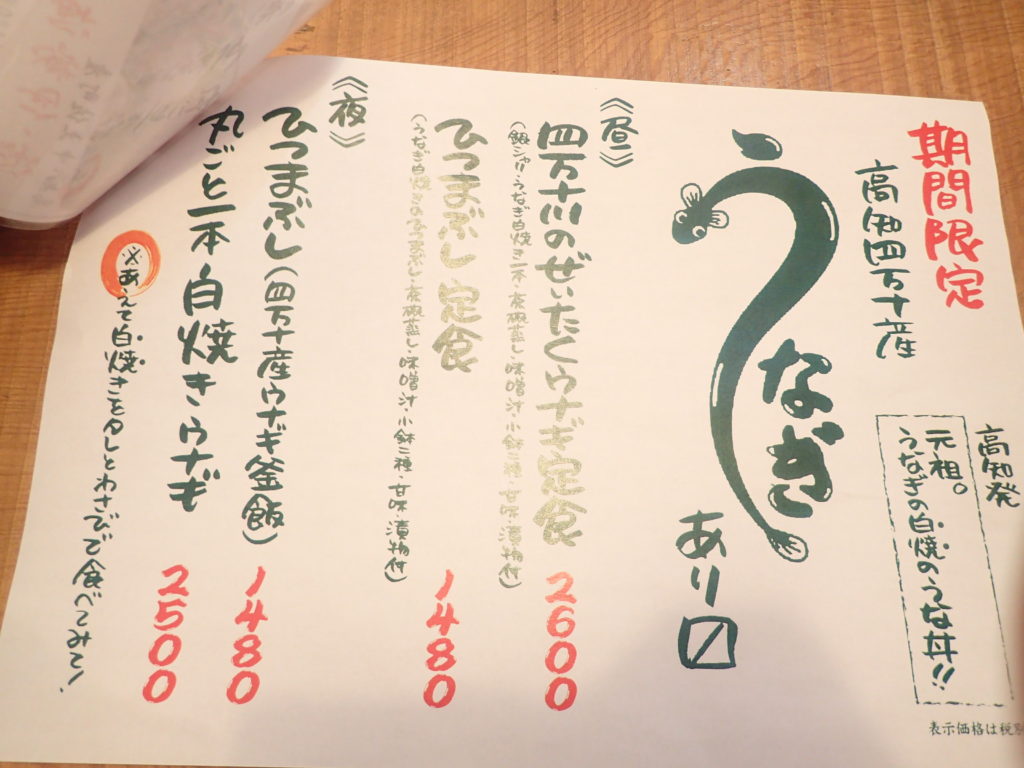 期間限定
高知四万十産
うなぎ
あり〼
高知発
元祖。
うなぎの白焼のうな丼!!
表示価格は税
《昼》
四万十川のぜいたくウナギ定食 2600
(銀シャリ・うなぎ白焼き一本・茶碗蒸し・味噌汁・小鉢二種・甘味・漬物付)
ひつまぶし定食 1480
(うなぎ白焼きのひつまぶし・茶碗蒸し・味噌汁・小鉢二種・甘味・漬物付)
《夜》
ひつまぶし(四万十産ウナギ釜飯) 1480
丸ごと一本白焼きウナギ 2500
※あえて白焼きをタレとわさびで食べてみて!